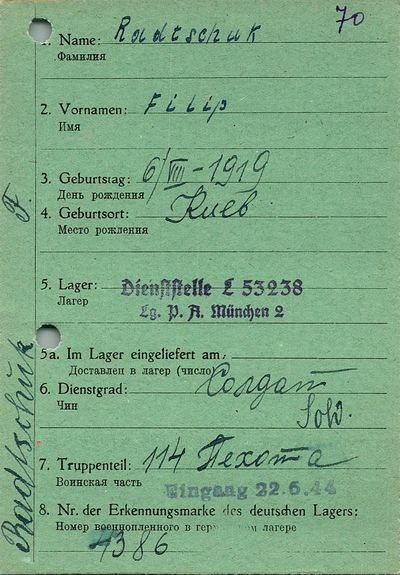 70
1. Name: Radtschuk
Фамилия
2. Vornamen: Filip
Имя
3. Geburtstag: 6/VIII-1919
День рождения
4. Geburtsort: Киев
Место рожления
5. Lager: Dienststelle L 53238
Лагер
Lg. P. A. München 2
5a. Im Lager eingeliefert am
Доставлен в лагер (число)
6. Dienstgrad: Солдат
Чин
Sold.
7. Truppenteil: 114 Пехота
Воинская часть
Eingang 22.6.44
8. Nr. der Erkennungsmarke des deutschen Lagers:
Номер военнопленного в германском лагере
4386
Radtschuk F.